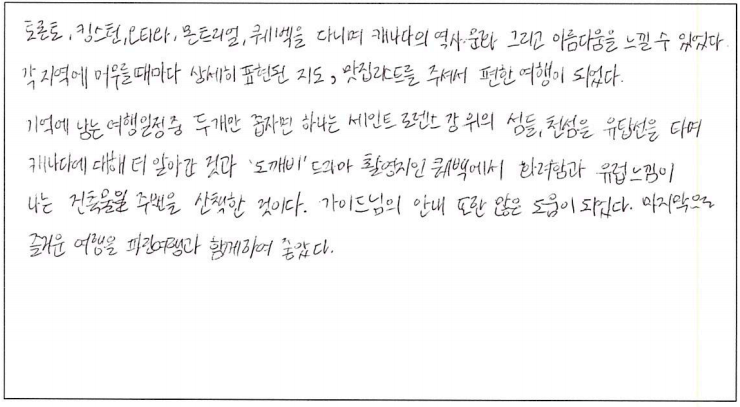 토론토, 킹스턴, 오타와, 몬트리얼, 퀘벡을 다니며 캐나다의 역사·문화 그리고 아름다움을 느낄 수 있었다.
각 지역에 머무를때마다 상세히 표현된 지도, 맛집리스트를 주셔서 편한 여행이 되었다.
기억에 남는 여행일정중 두개만 꼽자면 하나는 세인트 로렌스 강 위의 섬들, 천섬을 유람선을 타며
캐나다에 대해 더 알아간 것과 '도깨비' 드라마 촬영지인 퀘벡에서 화려함과 유럽느낌이
나는 건축물 주변을 산책한 것이다. 가이드님의 안내 또한 많은 도움이 되었다. 마지막으로
즐거운 여행을 파란여행과 함께하여 좋았다.